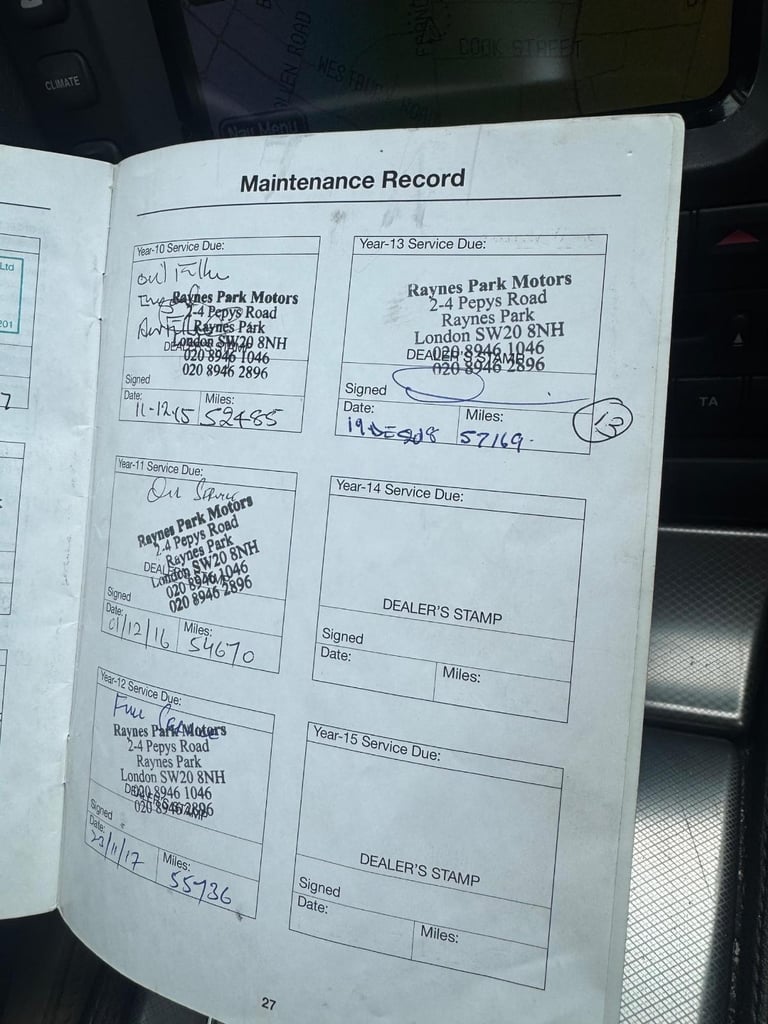 CLIMATE
COOK STREET
WESTBURY ROAD
Nav Menu
TA
Ltd
201
7
Maintenance Record
Year-10 Service Due:
Oil Filter
Raynes Park Motors
2-4 Pepys Road
Raynes Park
London SW20 8NH
DEALER'S STAMP
020 8946 1046
020 8946 2896
Signed
Date:
Miles:
11-12-15
52485
Year-11 Service Due:
Oil Service
Raynes Park Motors
2-4 Pepys Road
Raynes Park
London SW20 8NH
DEALER'S STAMP
020 8946 1046
020 8946 2896
Signed
Date:
Miles:
01/12/16
54670
Year-12 Service Due:
Full Service
Raynes Park Motors
2-4 Pepys Road
Raynes Park
London SW20 8NH
020 8946 1046
DEALER'S STAMP
020 8946 2896
Signed
Date:
Miles:
23/11/17
55736
Year-13 Service Due:
Raynes Park Motors
2-4 Pepys Road
Raynes Park
London SW20 8NH
020 8946 1046
DEALER'S STAMP
020 8946 2896
Signed
Date:
Miles:
57169.
13
Year-14 Service Due:
DEALER'S STAMP
Signed
Date:
Miles:
Year-15 Service Due:
DEALER'S STAMP
Signed
Date:
Miles:
27